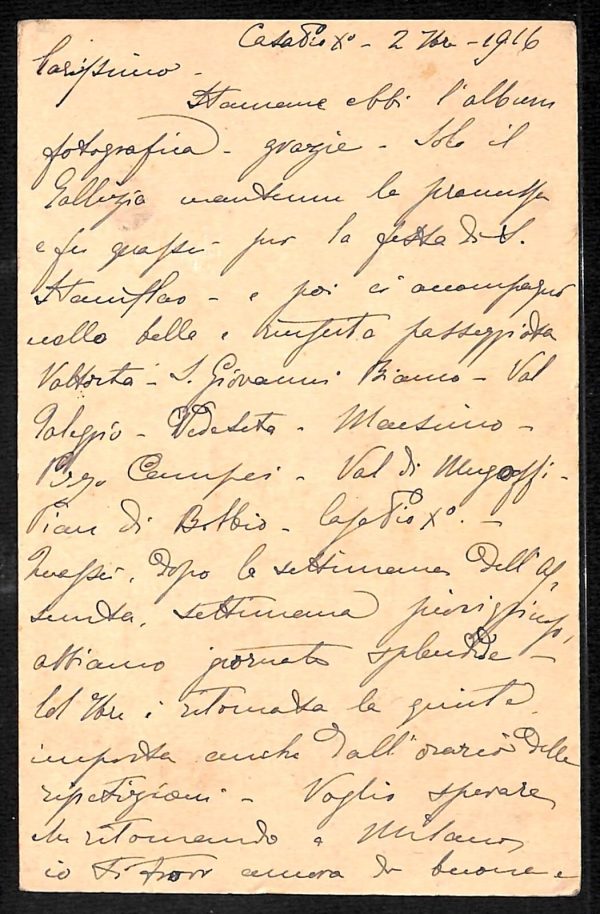 Casa Pio X° - 2 7bre - 1916
Carissimo -
Stamane ebbi l'album
fotografica - grazie - Solo il
mantenne la promessa
e fu quassù per la festa di S.
Stanislao - e poi ci accompagnò
nella bella e passeggiata
Valtorta - S. Giovanni Bianco - Val
Taleggio - Vedeseta - Maesimo -
Pizzo Campei - Val di
Pian di Bobbio - Casa Pio X°. -
Quassù, dopo la settimana dell'As,
sunta, settimana
abbiamo giornate splendide -
Col 7bre è ritornata la quiete
imposta anche dall'orario delle
ripetizioni - Voglio sperare
che ritornando a Milano,
io ti trovi ancora di buone e